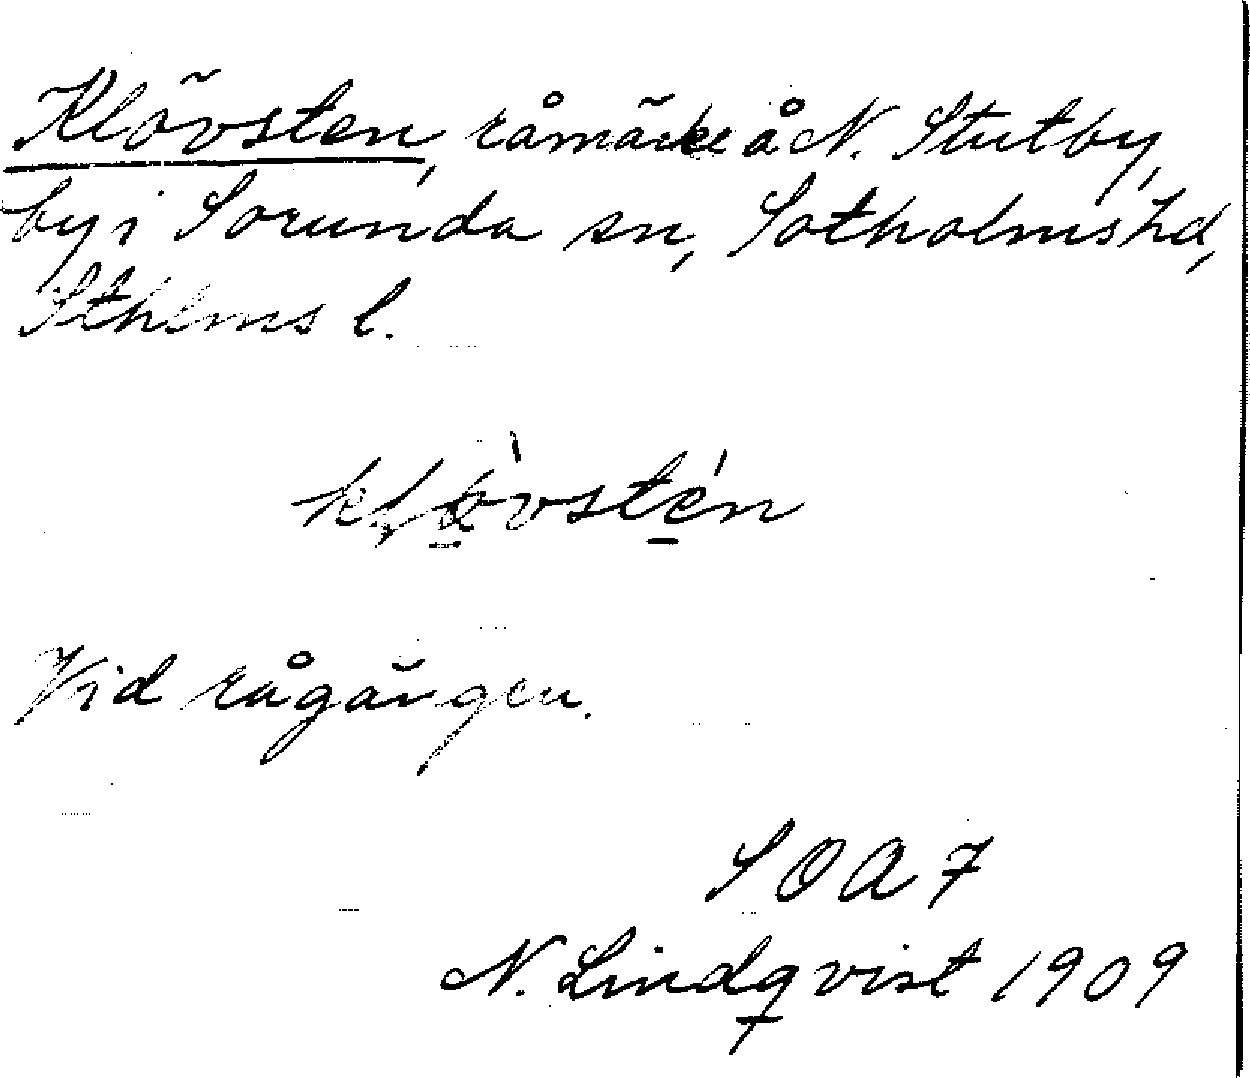 Klövsten, råmärke å N. Stutby,
by i Sorunda sn, Sotholms hd,
Sthlms l.
klö̀vstén
Vid rågången.
SOA 7
N. Lindqvist 1909